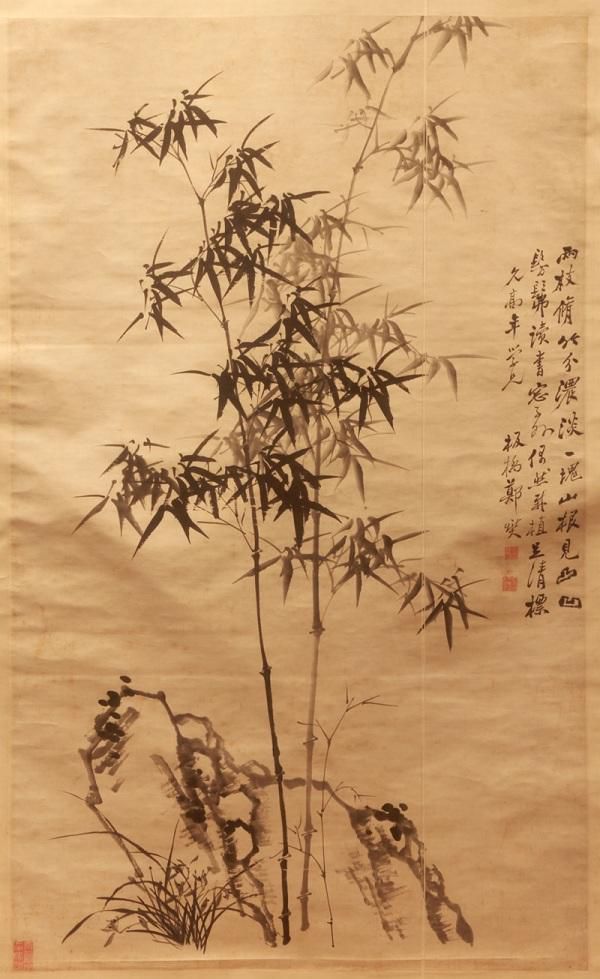 兩枝脩竹分濃淡一塊山根見凸凹
髣髴讀書窓子外偶然新植足清標
高年學兄
板橋鄭燮